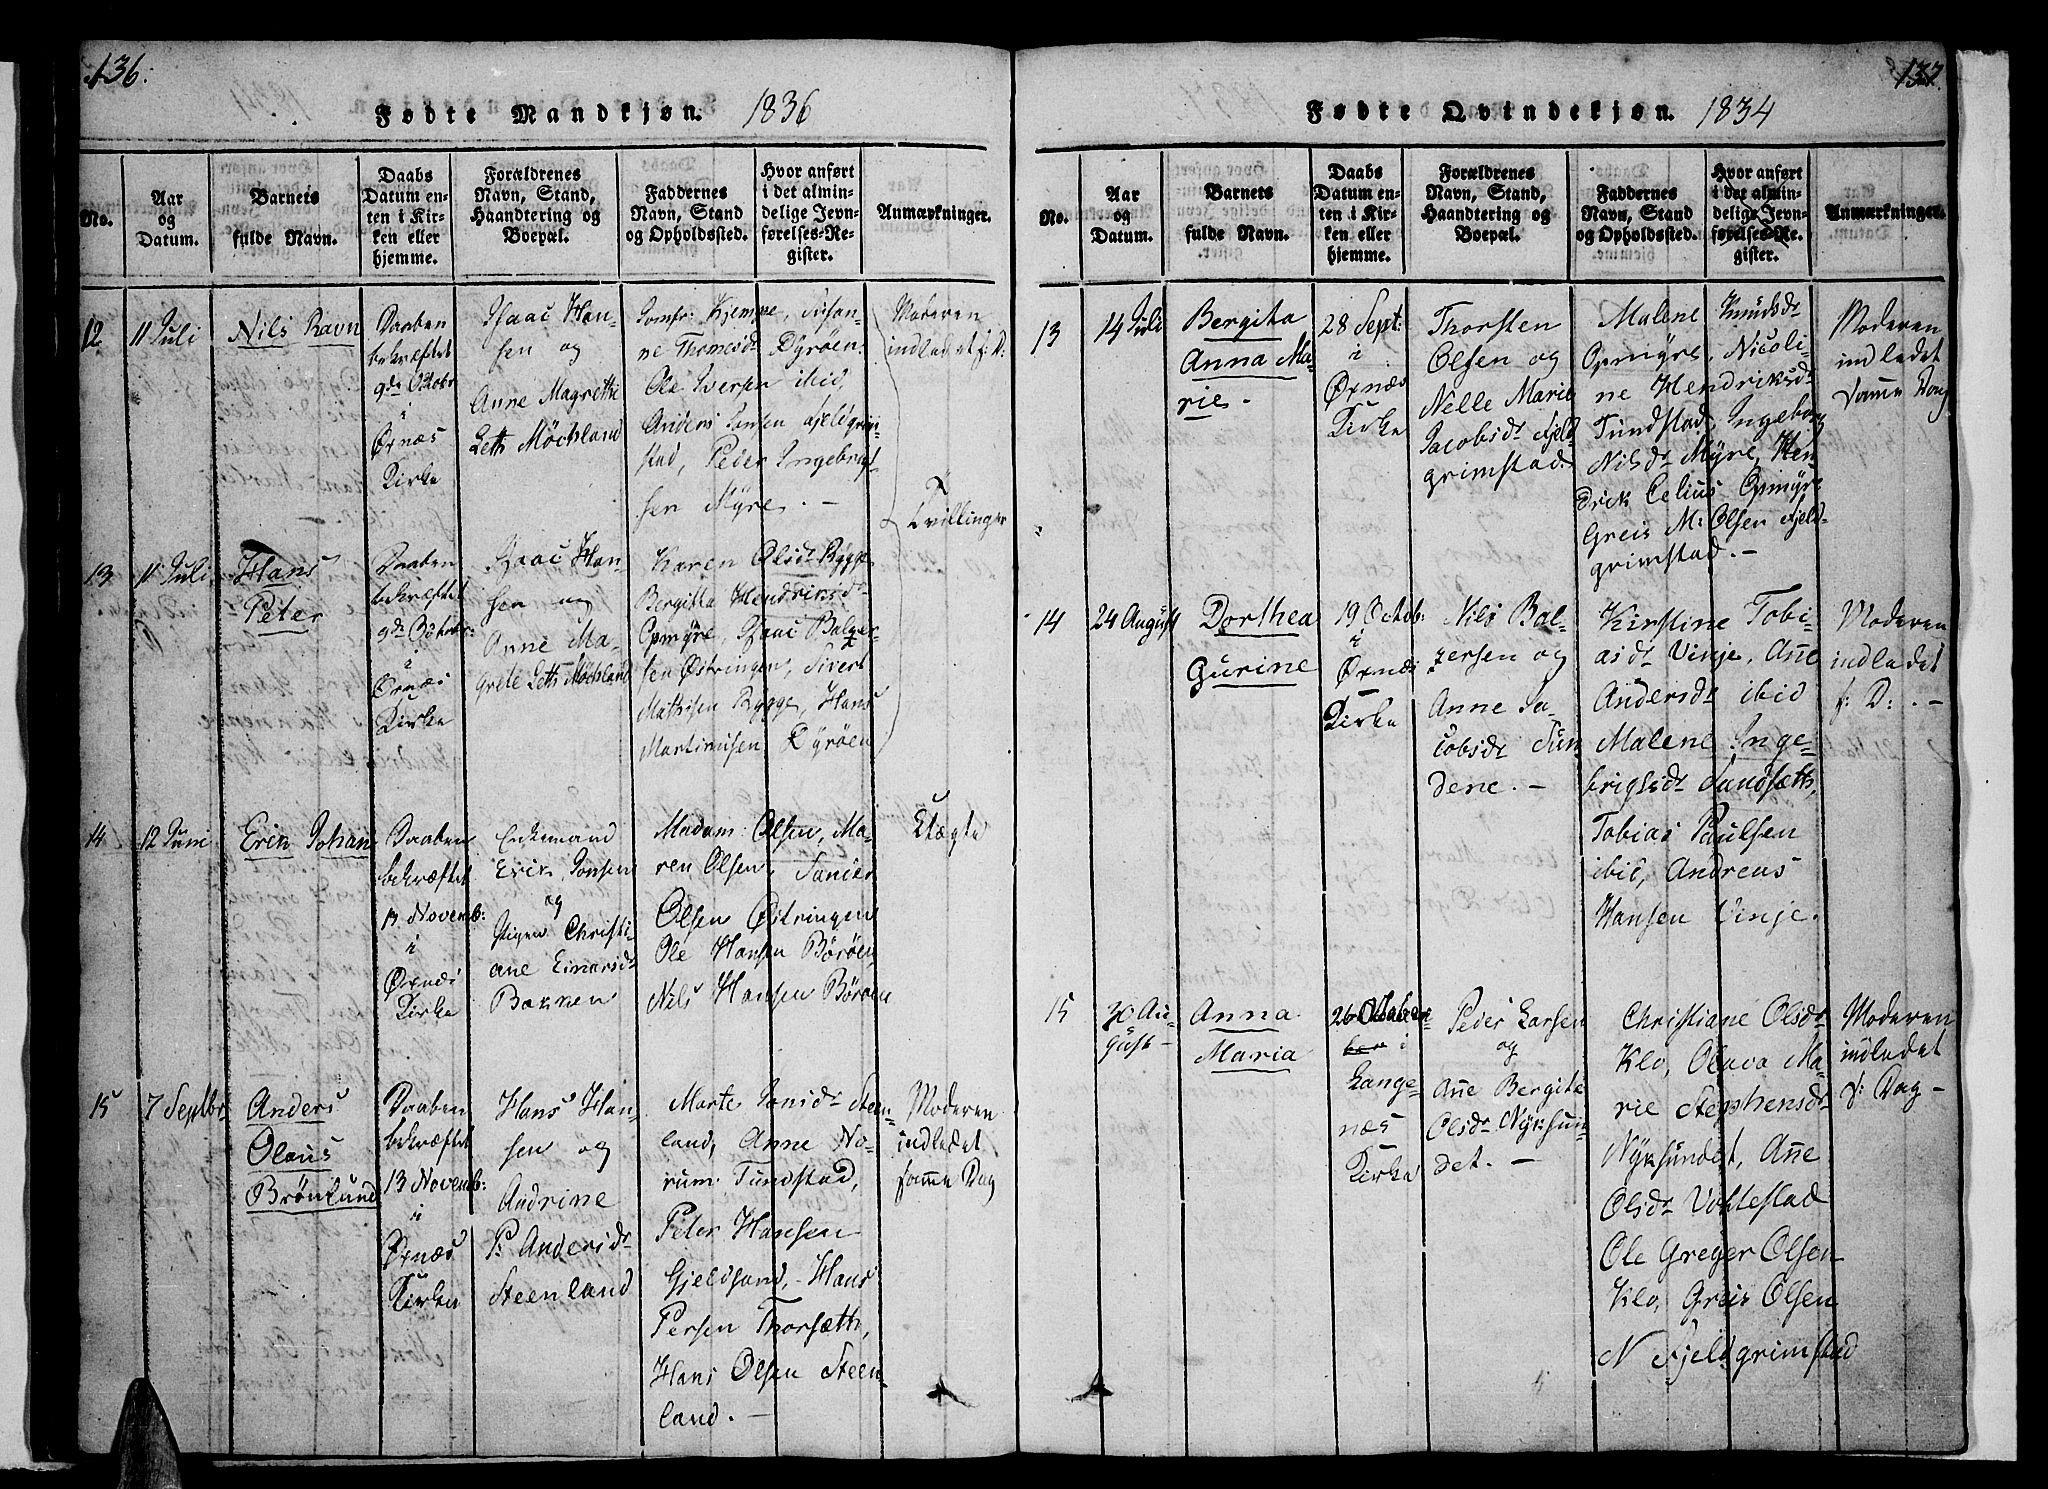 136.
Fødte Mandkjøn. 1836
No.
Aar
og
Datum.
Barnets
fulde Navn.
Daabs
Datum en-
ten i Kir-
ken eller
hjemme.
Forældrenes
Navn, Stand,
Haandtering og
Boepæl.
Faddernes
Navn, Stand
og Opholdssted.
Hvor anført
i det almin-
delige Jevn-
førelses-Re-
gister.
Anmærkninger.
12
11 Juli
Nils Ravn
Daaben
bekræftet
9de Octobr
i
Øxnæs
Kirke
Isaac Han-
sen og
Anne Magrethe
Leth Möchland
Jomfr: Kjempe,
ne Thomasdr Dyröen
Ole Iversen ibid,
Anders Jansen Fjeldgrim-
stad, Peder Ingebrigt-
sen Myre. -
Moderen
indledet f: D:
Tvillinger
13
11 Juli
Hans
Peter
Daaben
bekræftet
9de Octobr
i
Øxnæs
Kirke
Isaac Han-
sen og
Anne Ma-
grete Leth Möchland
Karen Olsdr Rygge
Bergitta Hendriksdr
Opmyre, Isaac Balzer-
sen Østringen, Sivert
Mathisen Rygge, Hans
Martinusen Dyröen
14
12 Juni
Erik Johan
Daaben
bekræftet
13 Novemb:
i
Øxnæs
Kirke
Enkemand
Erik Jonsen
og
Pigen Christi-
ane Einarsdr
Bakken
Madam: Olsen, Ma-
ren Olsen,
Olsen Østringen
Ole Hansen Böröen
Nils Hansen Böröen
Uægte
15
7 Septbr
Anders
Olaus
Brönlund
Daaben
bekræftet
13 Novemb:
i
Øxnæs
Kirke
Hans Han-
sen og
Andrine
P: Andersdr
Steenland
Marte Jonsdr Steen-
land, Anne No-
rum Tundstad,
Peter Hansen
Gjeldsand, Hans
Persen Thorsæth,
Hans Olsen Steen-
land. -
Moderen
indledet
samme Dag
137.
Fødte Qvindekjøn. 1834
No.
Aar
og
Datum.
Barnets
fulde Navn.
Daabs
Datum en-
ten i Kir-
ken eller
hjemme.
Forældrenes
Navn, Stand,
Haandtering og
Boepæl.
Faddernes
Navn, Stand
og Opholdssted.
Hvor anført
i det almin-
delige Jevn-
førelses-Re-
gister.
Anmærkninger.
13
14 Juli
Bergita
Anna Ma-
rie. -
28 Sept:
i
Øxnæs
Kirke
Thorsten
Olsen og
Nelle Marie
Jacobsdr Fjeld-
grimstad.
Malene Knudsdr
Opmyre, Nicoli-
ne Hendriksdr
Tundstad, Ingeborg
Nilsdr Myre, Hen-
drik Celius Opmyre
Greis M: Olsen Fjeld-
grimstad. -
Moderen
indledet
samme Dag
14
24 August
Dorthea
Gurine
19 Octob:
i
Øxnæs
Kirke
Nils Bal-
zersen og
Anne Ja-
cobsdr Tun-
dene. -
Kirstine Tobi-
asdr Vinje, Añe
Andersdr ibid
Malene Inge-
brigtsdr Sandsæth,
Tobias Paulsen
ibid, Andreas
Hansen Vinje.
Moderen
indledet
f: D: . -
15
30 Au-
gust -
Anna
Maria
26 October
i
Lange-
næs
Kirke
Peder Larsen
og
Añe Bergite
Olsdr Nyksun-
det. -
Christiane Olsdr
Klo, Olava Ma-
rie Stephensdr
Nyksundet, Añe
Olsdr Vottestad
Ole Greger Olsen
Klo, Greis Olsen
N Fjeldgrimstad
Moderen
indledet
s: Dag -